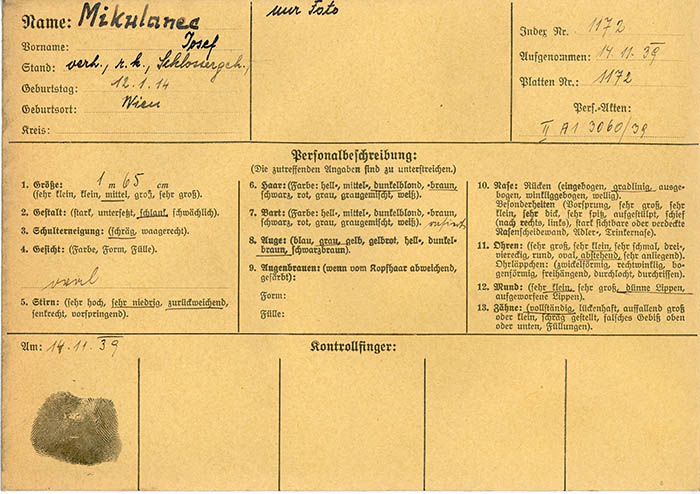 Name: Mikulanec
Vorname: Josef
Stand: verh., r. k., Schlossergeh.,
Geburtstag: 12.1.14
Geburtsort: Wien
Kreis:
nur Foto
Index Nr. 1172
Aufgenommen: 14.11.39
Platten Nr.: 1172
Pers.-Akten:
II A1 3060/39
Personalbeschreibung:
(Die zutreffenden Angaben sind zu unterstreichen.)
1. Größe: 1 m 65 cm
(sehr klein, klein, mittel, groß, sehr groß).
2. Gestalt: (stark, untersetzt, schlank, schwächlich).
3. Schulterneigung: (schräg, waagerecht).
4. Gesicht: (Farbe, Form, Fülle).
oval
5. Stirn: (sehr hoch, sehr niedrig, zurückweichend,
senkrecht, vorspringend).
6. Haar: (Farbe: hell-, mittel-, dunkelblond, -braun,
schwarz, rot, grau, graugemischt, weiß).
7. Bart: (Farbe: hell-, mittel-, dunkelblond, -braun,
schwarz, rot, grau, graugemischt, weiß). rasiert
8. Auge: (blau, grau, gelb, gelbrot, hell-, dunkel-
braun, schwarzbraun).
9. Augenbrauen: (wenn vom Kopfhaar abweichend,
gefärbt):
Form:
Fülle:
10. Nase: Rücken (eingebogen, gradlinig, ausge-
bogen, winkliggebogen, wellig).
Besonderheiten (Vorsprung, sehr groß, sehr
klein, sehr dick, sehr spitz, aufgestülpt, schief
(nach rechts, links), stark sichtbare oder verdeckte
Nasenscheidewand, Adler-, Trinkernase).
11. Ohren: (sehr groß, sehr klein, sehr schmal, drei-,
viereckig, rund, oval, abstehend, sehr anliegend).
Ohrläppchen: (zwickelförmig, rechtwinklig, bo-
genförmig, freihängend, durchlocht, durchrissen).
12. Mund: (sehr klein, sehr groß, dünne Lippen,
aufgeworfene Lippen).
13. Zähne: (vollständig, lückenhaft, auffallend groß
oder klein, schräg gestellt, falsches Gebiß oben
oder unten, Füllungen).
Am: 14.11.39
Kontrollfinger: